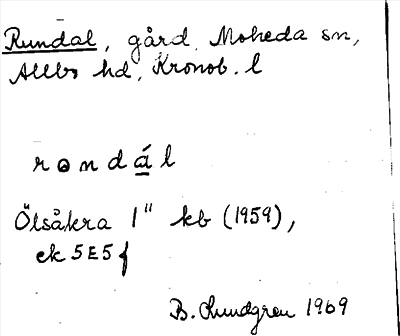 Rundal, gård, Moheda sn,
Allbo hd, Kronob. l
rɵndá̲l
Ölsåkra 1" kb (1959),
ek 5E5f
B. Lundgren 1969